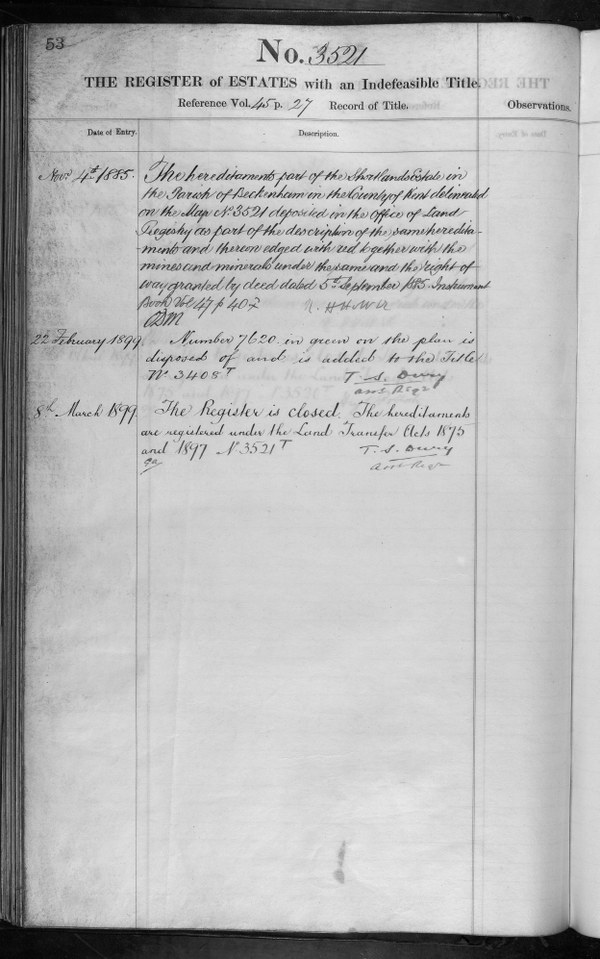 53
No. 3521
THE REGISTER of ESTATES with an Indefeasible Title.
Reference Vol. 45 p. 27 Record of Title.
Observations.
Date of Entry.
Description.
Novr 4th 1885.
The hereditaments part of the Shortlands Estate in
the Parish of Beckenham in the County of Kent delineated
on the Map No 3521 deposited in the Office of Land
Registry as part of the description of the same heredita-
ments and thereon edged with red together with the
mines and minerals under the same and the right of
way granted by deed dated 5th September 1885. Instrument
Book Vol 47 p 407
22 February 1899
Number 7620 in green on the plan is
disposed of and is added to the Title
No 3408T
T. S. Dury
asst Regr
8th March 1899
The Register is closed. The hereditaments
are registered under the Land Transfer Acts 1875
and 1897 No 3521T
T. S. Dury
asst Regr